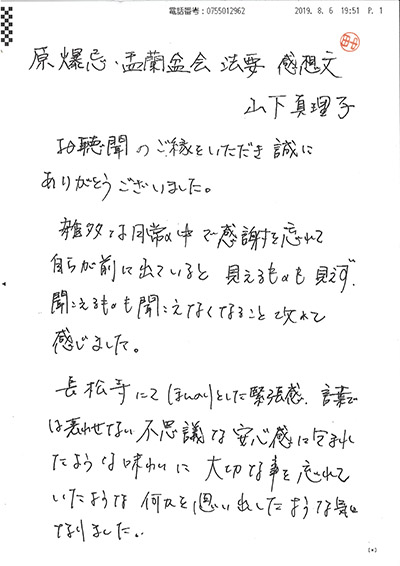 電話番号：0755012962 2019. 8. 6 19:51 P. 1
原爆忌・盂蘭盆会 法要 感想文
山下真理子
お聴聞のご縁をいただき誠に
ありがとうございました。
雑多な日常の中で感謝を忘れて
自らが前に出ていると 見えるものも見えず、
聞こえるものも聞こえなくなること 改めて
感じました。
長松寺にて ほんのりとした緊張感、言葉で
は表わせない 不思議な 安心感に包まれ
たような味わいに 大切な事を忘れて
いたような 何かを思い出したような気に
なりました。